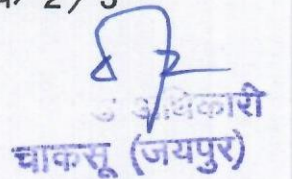 2/3
अधिकारी
चाकसू (जयपुर)